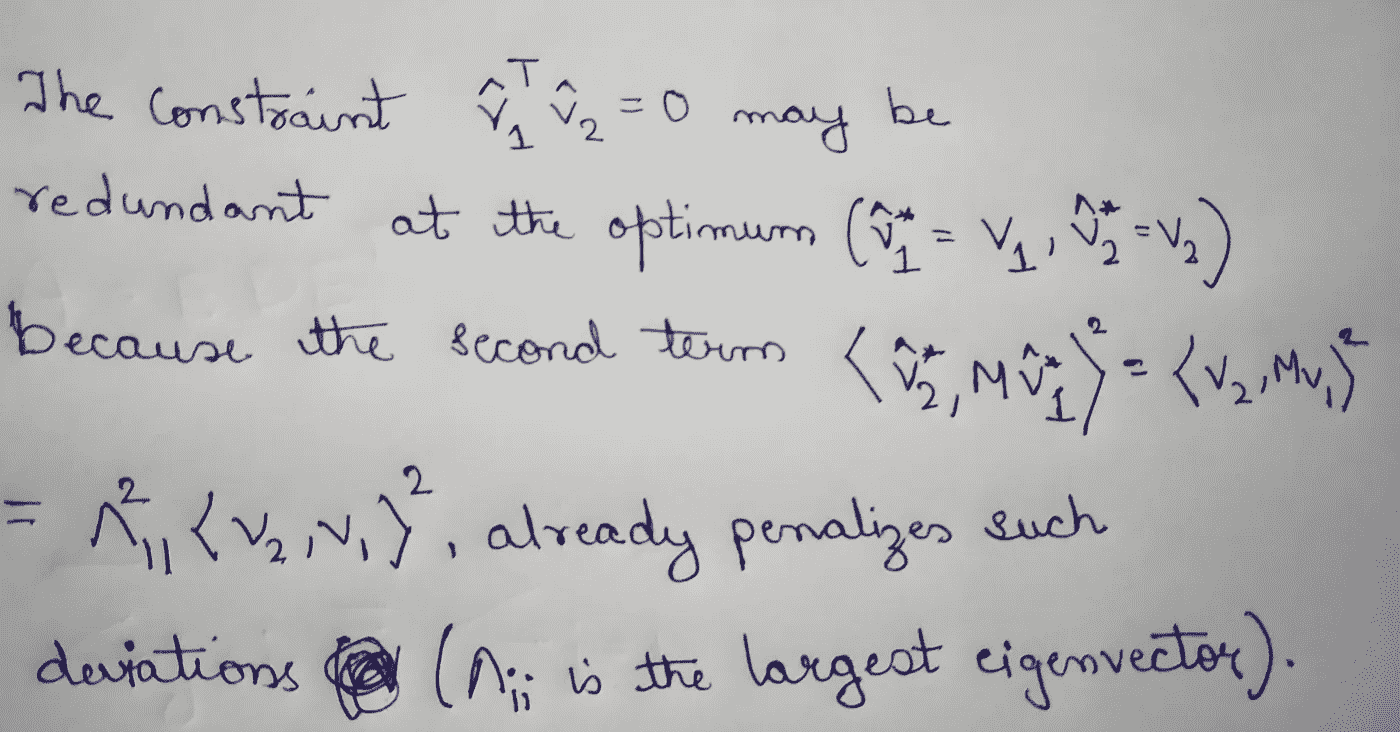 The constraint v̂₁ᵀ v̂₂ = 0 may be
redundant at the optimum (v̂₁* = v₁, v̂₂* = v₂)
because the second term ⟨v̂₂*, M v̂₁*⟩² = ⟨v₂, Mv₁⟩²
= Λ²₁₁ ⟨v₂, v₁⟩², already penalizes such
deviations (Λ₁₁ is the largest eigenvector).